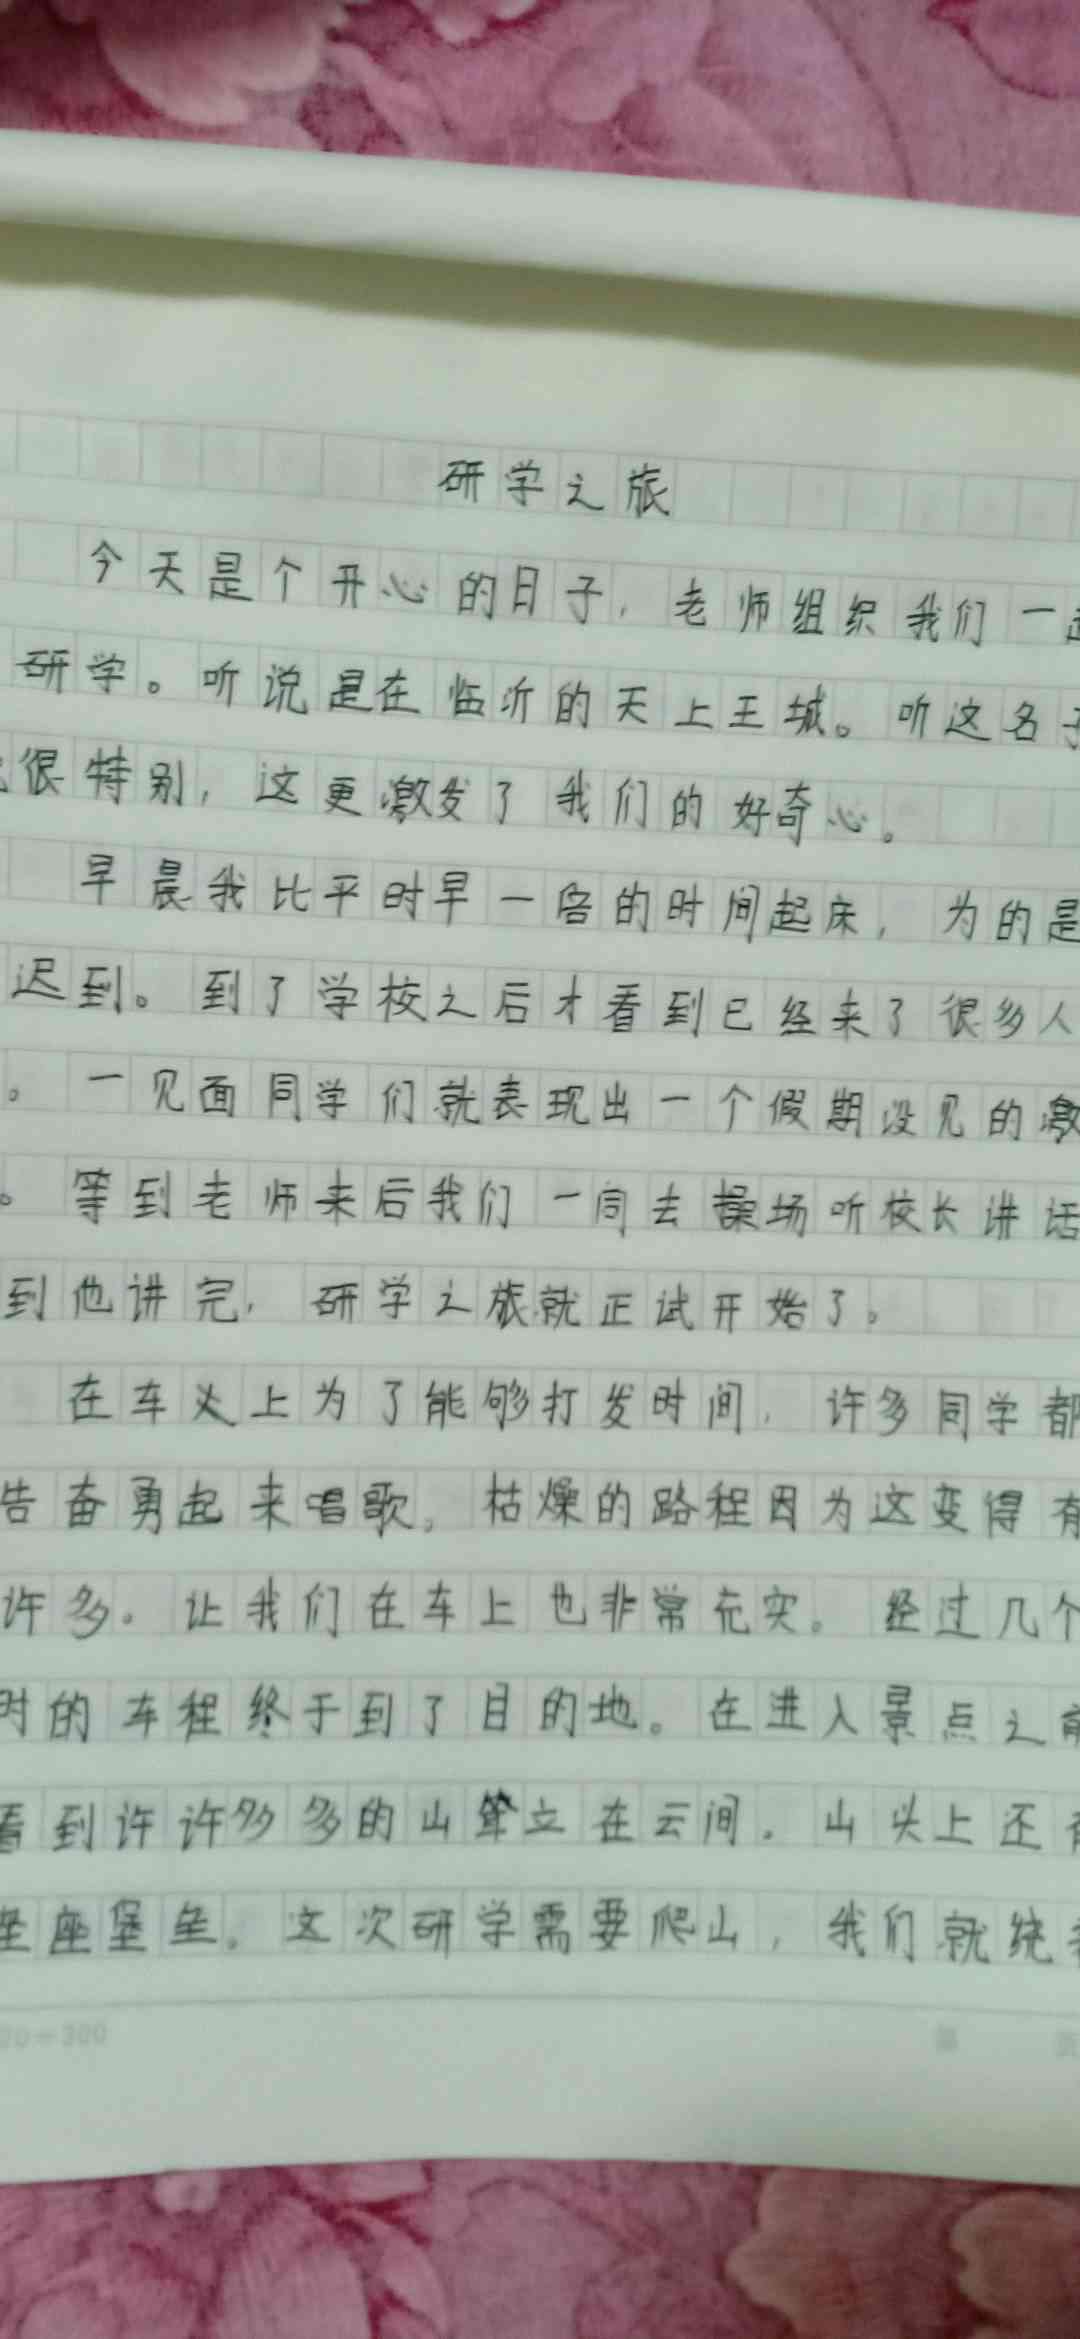 研学之旅
今天是个开心的日子，老师组织我们一起
研学。听说是在临沂的天上王城。听这名子
很特别，这更激发了我们的好奇心。
早晨我比平时早一倍的时间起床，为的是
迟到。到了学校之后才看到已经来了很多人
。一见面同学们就表现出一个假期没见的激
。等到老师来后我们一同去操场听校长讲话
到他讲完，研学之旅就正试开始了。
在车头上为了能够打发时间，许多同学都
告奋勇起来唱歌。枯燥的路程因为这变得有
许多。让我们在车上也非常充实。经过几个
时的车程终于到了目的地。在进入景点之前
看到许许多多的山耸立在云间。山头上还有
座堡垒。这次研学需要爬山，我们就绕
20=300
第 页